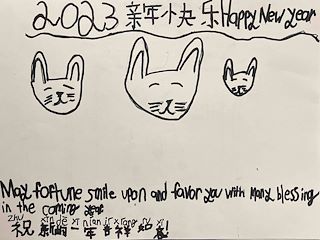 2023 新年快乐 Happy New year
May fortune smile upon and favor you with many blessing
in the coming year
zhu xin de yi nian ji xiang ru yi
祝 新的一年 吉祥如意!